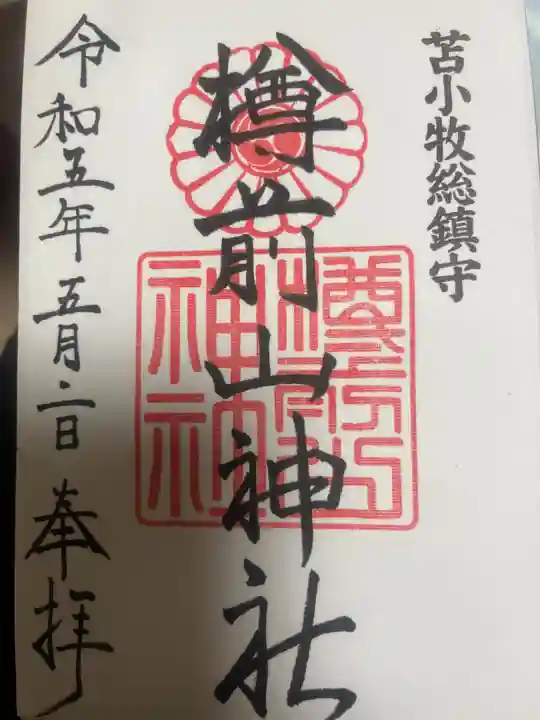 苫小牧総鎮守
樽前山神社
令和五年五月二日 奉拝
樽前山
神社